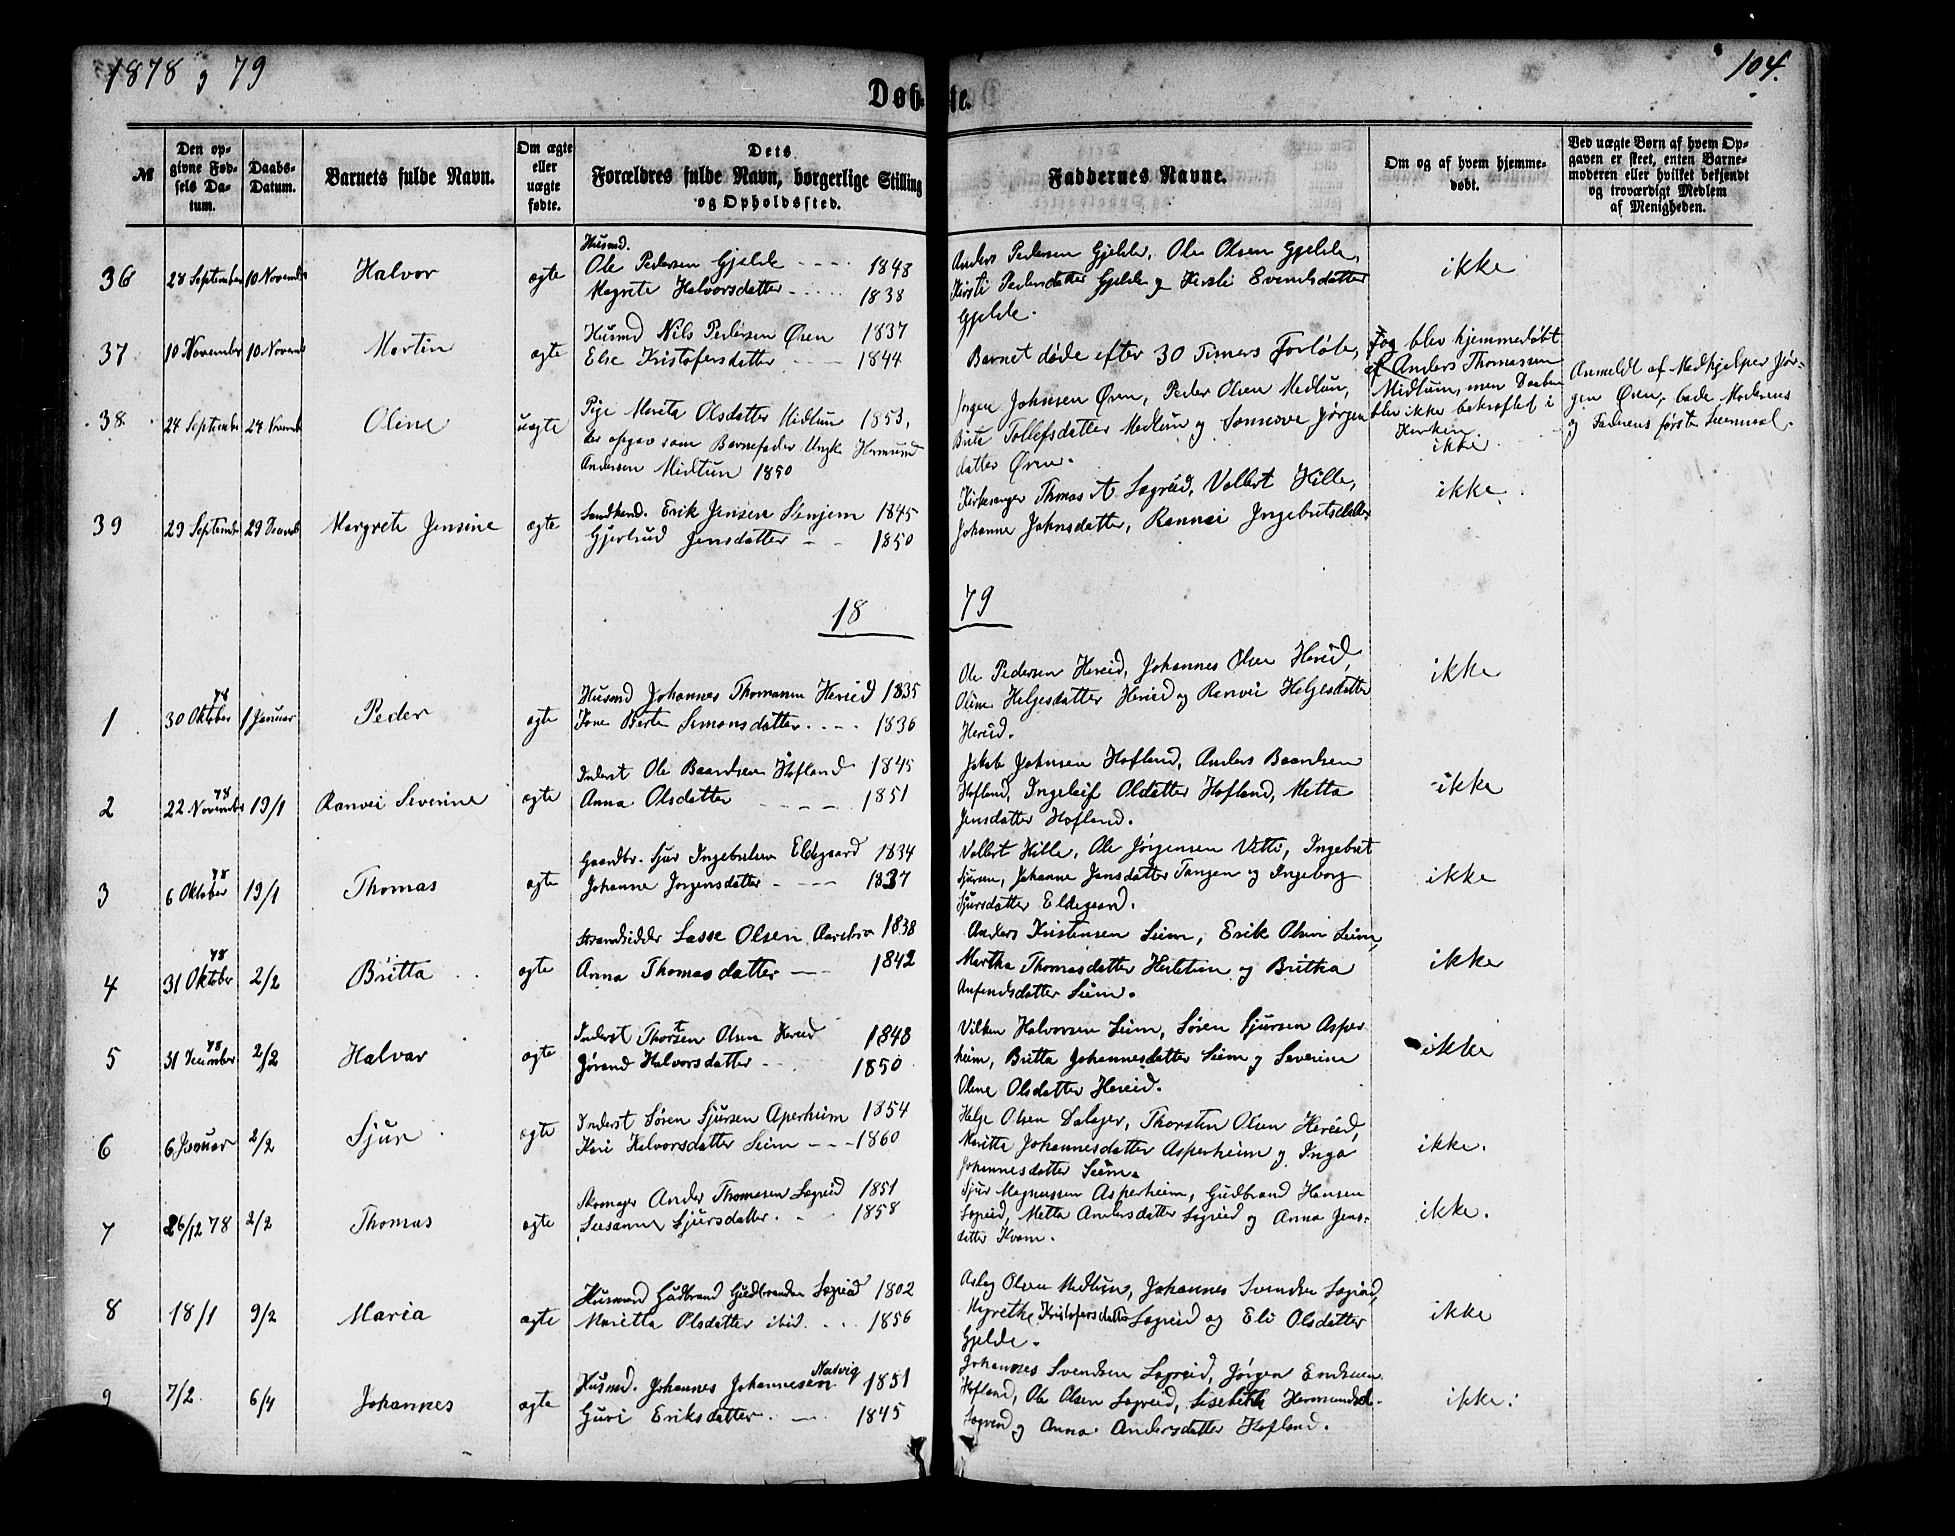 1878 g 79
104.
Døbte.
№
Den op-
givne Fød-
sels Da-
tum.
Daabs-
Datum.
Barnets fulde Navn.
Om ægte
eller
uægte
fødte.
Dets
Forældres fulde Navn, borgerlige Stilling
og Opholdssted.
Faddernes Navne.
Om og af hvem hjemme-
døbt.
Ved uægte Børn af hvem Op-
gaven er skeet, enten Barne-
moderen eller hvilket bekjendt
og troværdigt Medlem
af Menigheden.
36
28 September
10 November
Halvor
ægte
Husmd.
Ole Pedersen Gjelde 1848
Magrete Halvorsdatter 1838
Anders Pedersen Gjelde, Ole Olsen Gjelde,
Kirsti Pedersdatter Gjelde g Kirsti Svendsdatter
Gjelde.
ikke
37
10 November
10 Novemb
Martin
ægte
Husmd Nils Pedersen Øren 1837
Else Kristofersdatter 1844
Barnet døde efter 30 Timers Forløb,
og blev hjemmedøbt
af Anders Thomassen
Midtun, men Daaben
blev ikke bekræftet i
Kirken
38
24 September
24 Novemb
Oline
uægte
Pige Marita Olsdatter Midtun 1853,
der opgav som Barnefader Ungk. Hermund
Andersen Midtun 1850
Jørgen Johnsen Øren, Peder Olsen Medtun,
Brite Tollefsdatter Medtun og Sønnove Jørgen
datter Øren.
ikke
Anmeldt af Medhjelper Jør-
gen Øren, bade Moderens
og Faderens første Leiermaal.
39
29 September
29 Decemb
Margrete Jensine
ægte
Landhand. Erik Jensen Stenjem 1845
Gjertrud Jensdatter 1850
Kirkesanger Thomas A Sægreid, Vollert Hille,
Johanne Johnsdatter, Rannei Ingebretsdatter
ikke
1879
1
30 Oktober 78
1 Januar
Peder
ægte
Husmd Johannes Thomassen Hereid 1835
Kone Berte Simonsdatter 1836
Ole Pedersen Hereid, Johannes Olsen Hereid,
Oline Helgesdatter Hereid og Renvei Helgesdatter
Hereid.
ikke
2
22 November 78
19/1
Ranvei Severine
ægte
Inderst Ole Baardsen Hofland 1845
Anna Olsdatter 1851
Jakob Johnsen Hofland, Anders Baardsen
Hofland, Ingeleif Olsdatter Hofland, Metta
Jensdatter Hofland.
ikke
3
6 Oktober 78
19/1
Thomas
ægte
Gaardbr. Sjur Ingebretsen Eldegaard 1834
Johanne Jørgensdatter 1837
Vollert Hille, Ole Jørgensen Vetti, Ingebret
Sjursen, Johanne Jensdatter Tangen og Ingeborg
Sjursdatter Eldegaard.
ikke
4
31 Oktober 78
2/2
Britta
ægte
Strandsidder Lasse Olsen 1838
Anna Thomasdatter 1842
Anders Kristensen Seim, Erik Olsen Seim,
Martha Thomasdatter og Britha
Anfindsdatter Seim.
ikke
5
31 December 78
2/2
Halvar
ægte
Inderst Thorsten Olsen Hereid 1848
Jørand Halvorsdatter 1850
Vilken Halvorsen Seim, Søren Sjursen Asper-
heim, Britta Johannesdatter Seim og Severine
Oline Olsdatter Hereid.
ikke
6
6 Januar
2/2
Sjur
ægte
Inderst Søren Sjursen Asperheim 1854
Kari Halvorsdatter Seim 1860
Helge Olsen Dalager, Thorsten Olsen Hereid,
Maritta Johannesdatter Asperheim og Inga
Johannesdatter Seim.
ikke.
7
26/12 78
2/2
Thomas
ægte
Skomager Ander Thomasen Sægreid 1851
Susanne Sjursdatter. 1858
Sjur Magnussen Asperheim, Gudbrand Hansen
Sægreid, Metta Andersdatter Sægreid og Anna Jens-
datter Kvam.
ikke.
8
18/1
9/2
Maria
ægte
Husmand Gudbrand Gudbrandsen Sægreid 1802
Maritta Olsdatter ibid. 1856
Aslag Olsen Midtun, Johannes Svendsen Sægreid,
Margrethe Kristofersdatter Sægreid og Eli Olsdatter
Gjelde.
ikke
9
7/2
6/4
Johannes
ægte
Husmd. Johannes Johannesen Natvig 1851
Guri Eriksdatter 1845
Johannes Svendsen Sægreid, Jørgen Endresen
Hofland, Ole Olsen Sægreid, Lisebeth Hermundsd.
Sægreid og Anna Andersdatter Hofland.
ikke.